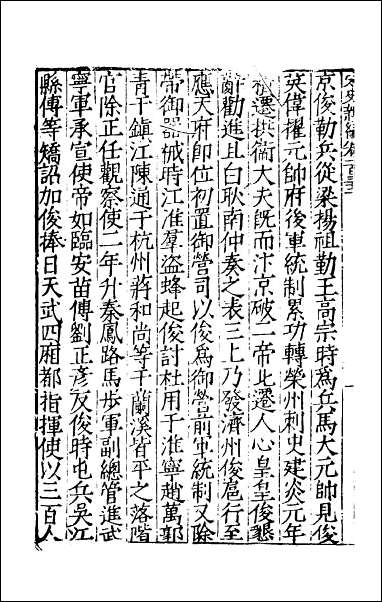 宋史新編卷
京俊勒兵從梁揚祖勤王高宗時為兵馬大元帥見俊
英偉擢元帥府後軍統制累功轉榮州刺史建炎元年
遷拱衛大夫既而汴京破二帝北遷人心皇皇俊懇
辭勸進且白耿南仲奏之表三上乃發濟州俊扈行至
應天府即位初置御營司以俊為御營前軍統制又除
帶御器械時江淮羣盜蜂起俊討杜用于淮寧趙萬郭
青于鎮江陳通于杭州蔣和尚等于蘭溪皆平之落階
官除正任觀察使二年升秦鳳路馬步軍副總管進武
寧軍承宣使帝如臨安苗傅劉正彥反俊時屯兵吳江
縣傅等矯詔加俊捧日天武四廂都指揮使以三百人